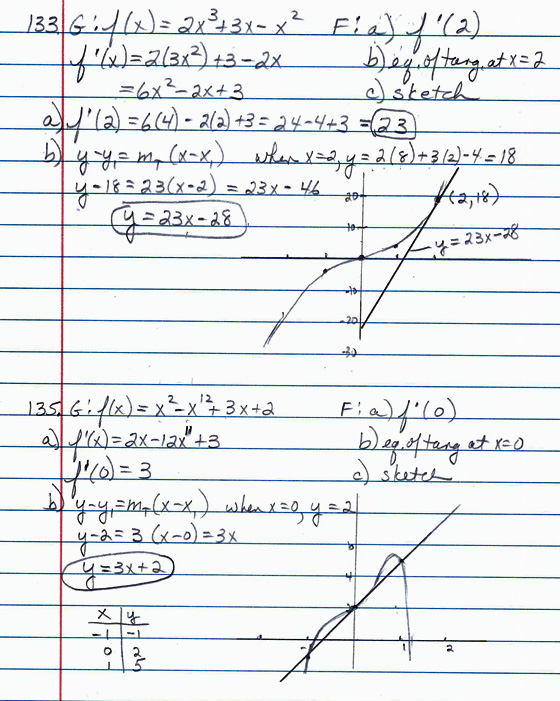 133. G: f(x) = 2x³+3x-x² F: a) f'(2)
f'(x) = 2(3x²)+3-2x b) eq. of tang. at x=2
= 6x²-2x+3 c) sketch
a) f'(2) = 6(4) - 2(2)+3 = 24-4+3 = 23
b) y-y₁ = m_T (x-x₁) when x=2, y = 2(8)+3(2)-4 = 18
y-18 = 23(x-2) = 23x-46
y = 23x-28
20
(2,18)
10
y=23x-28
-10
-20
-30
135. G: f(x) = x²-x¹²+3x+2 F: a) f'(0)
a) f'(x) = 2x-12x¹¹+3 b) eq. of tang at x=0
f'(0) = 3 c) sketch
b) y-y₁ = m_T (x-x₁) when x=0, y=2
y-2 = 3(x-0) = 3x
y = 3x+2
6
4
x y
-1 -1
0 2
1 5
1 2